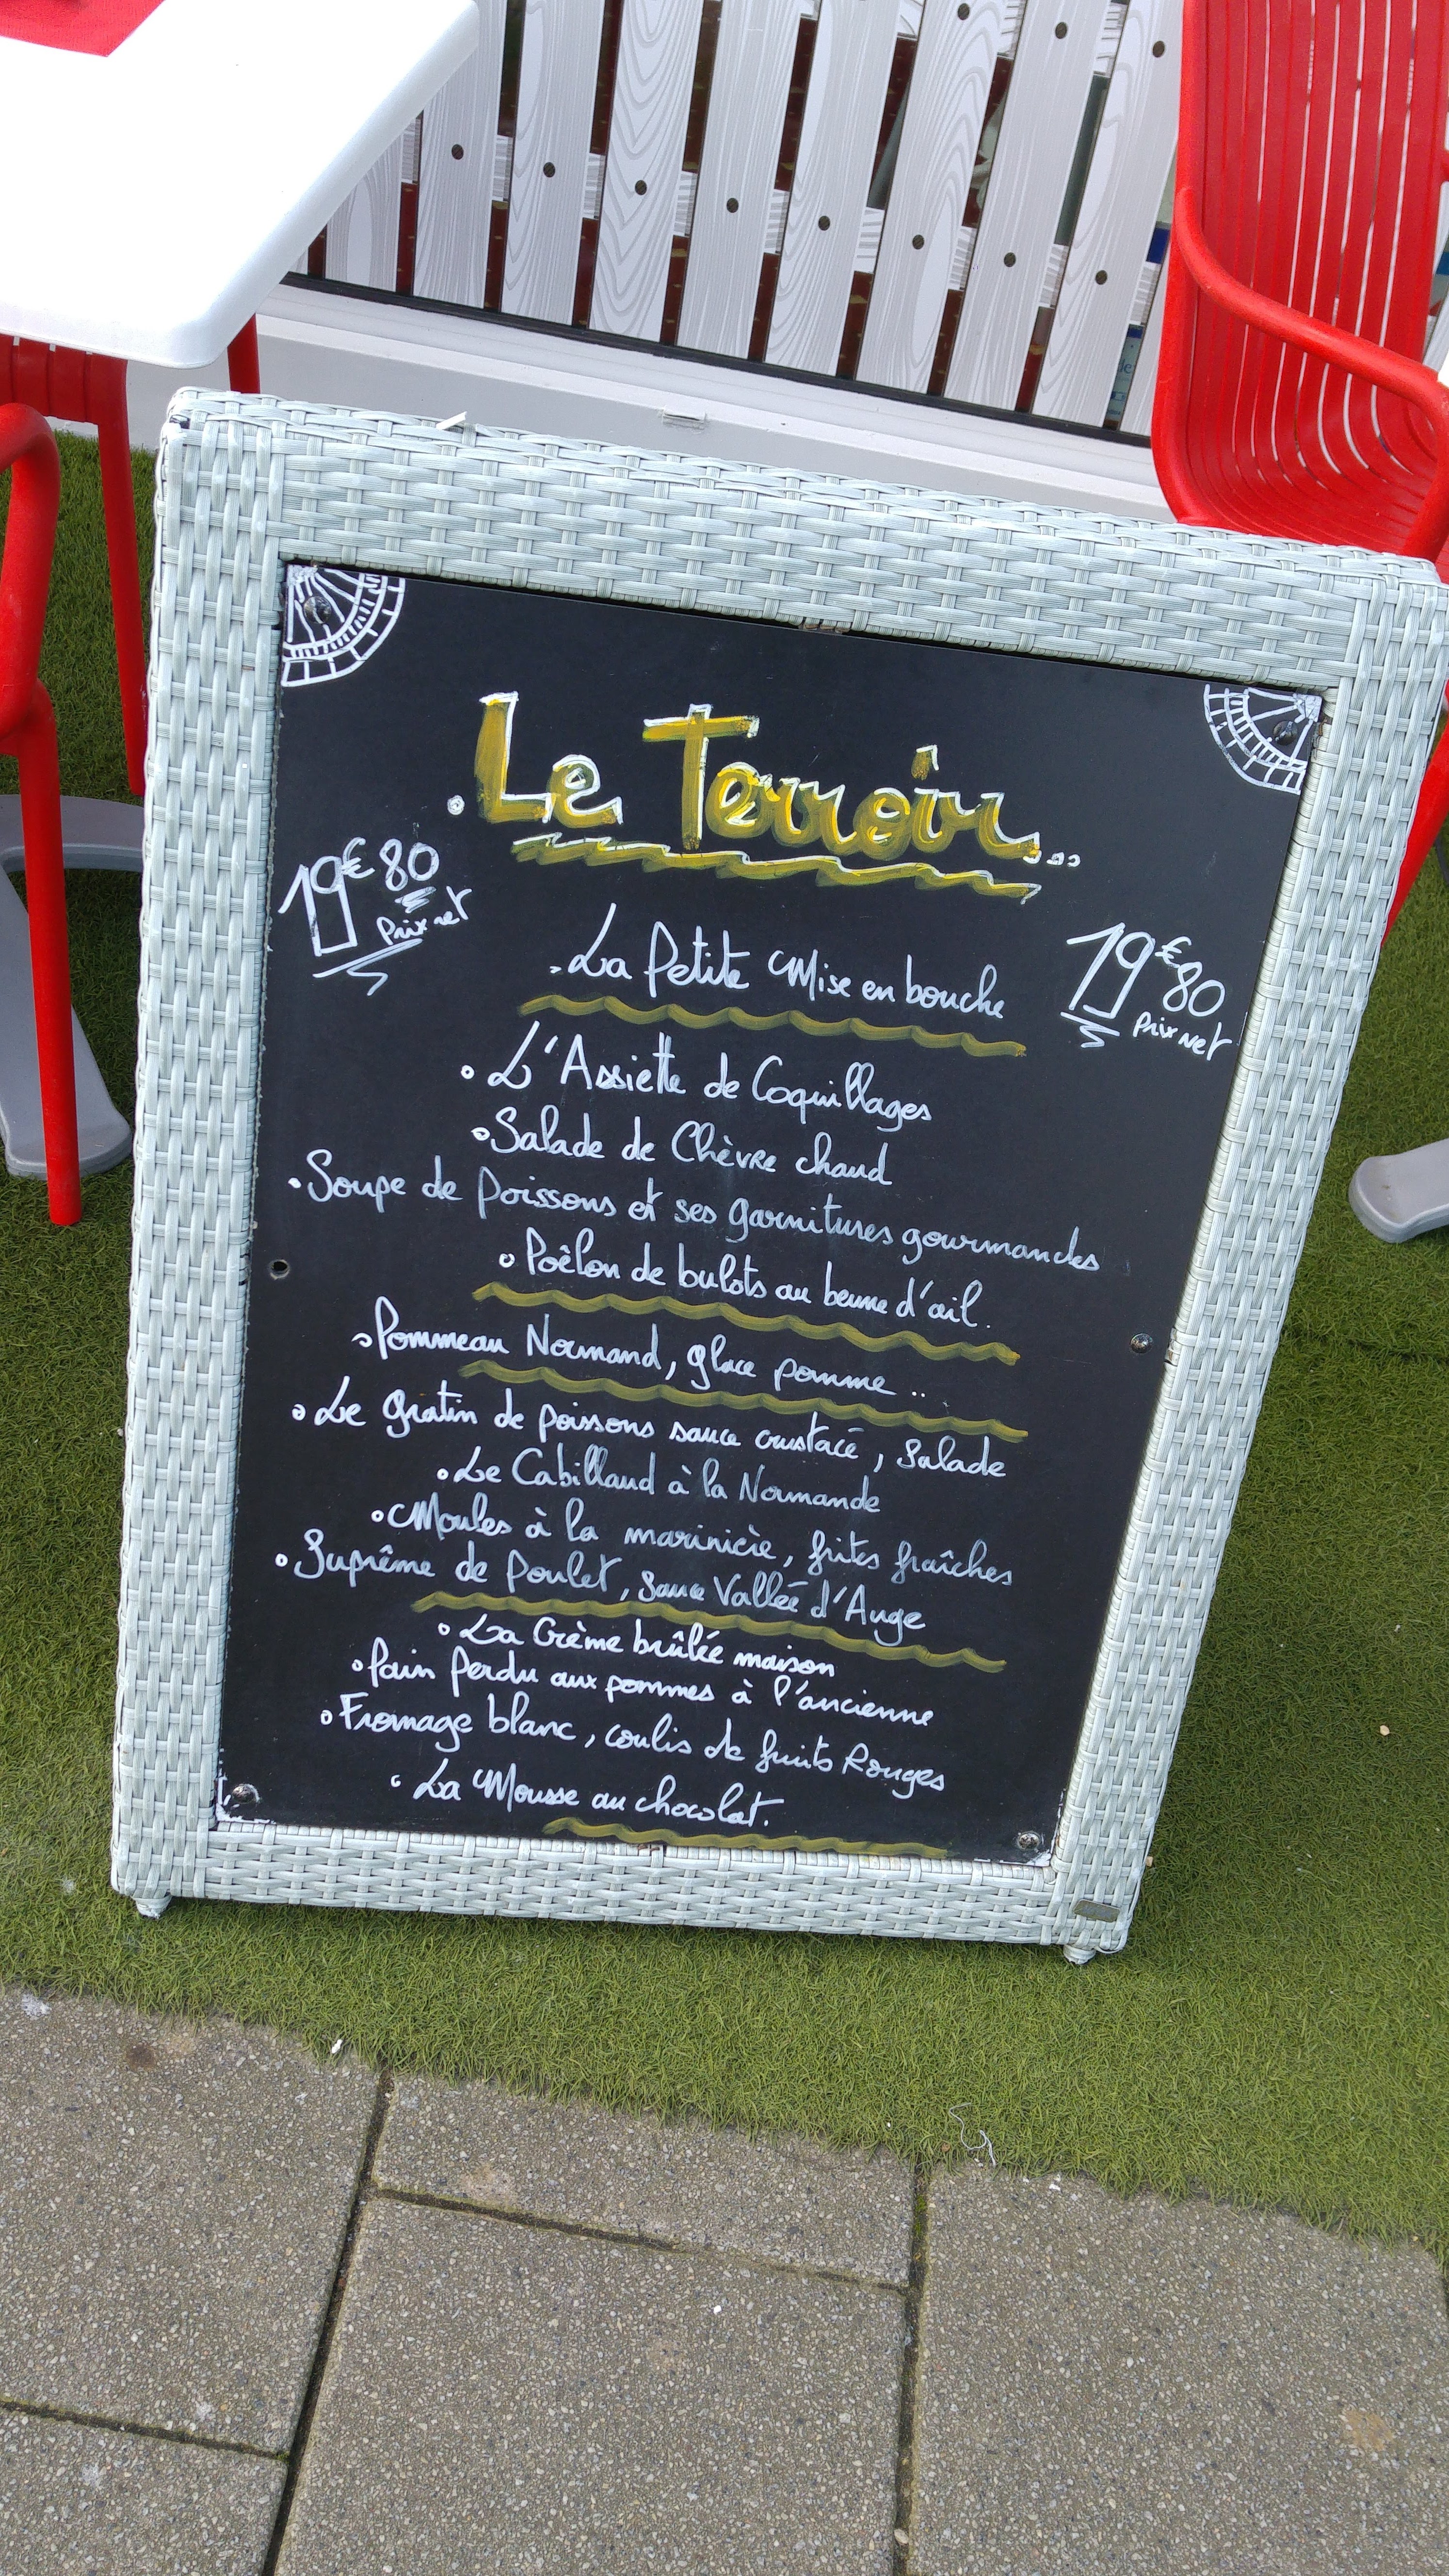 . Le Terroir...
19€80
Prix net
. La Petite Mise en bouche
19€80
Prix net
• L'Assiette de Coquillages
• Salade de Chèvre chaud
• Soupe de poissons et ses garnitures gourmandes
• Poêlon de bulots au beurre d'ail.
• Pommeau Normand, glace pomme ..
• Le gratin de poissons sauce crustacé, salade
• Le Cabillaud à la Normande
• Moules à la marinière, frites fraîches
• Suprême de Poulet, sauce Vallée d'Auge
• La Crème brûlée maison
• Pain Perdu aux pommes à l'ancienne
• Fromage blanc, coulis de fruits Rouges
• La Mousse au chocolat.